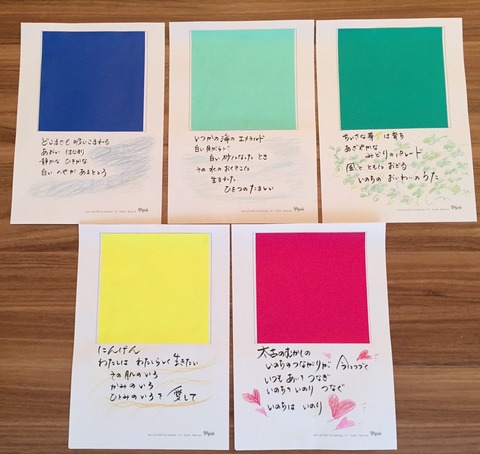 どこまでも
あおい はじまり
静かな ひそかな
白い
いつかの海の エメラルド
白い貝がらい
白い砂になったとき
その水の
生まれた
ひとつのたましい
ちいさな芽は育ち
あざやかな
みどりのパレード
風とともにおどる
いのちの おいわいのうた
にんげん
わたしは わたしらしく 生きたい
その肌のいろ
かみのいろ
ひとみのいろを 愛して
太古のむかしの
いのちのつながりが 今につづく
いつも あいをつなぎ
いのちを いのり つなぐ
いのちは いのり